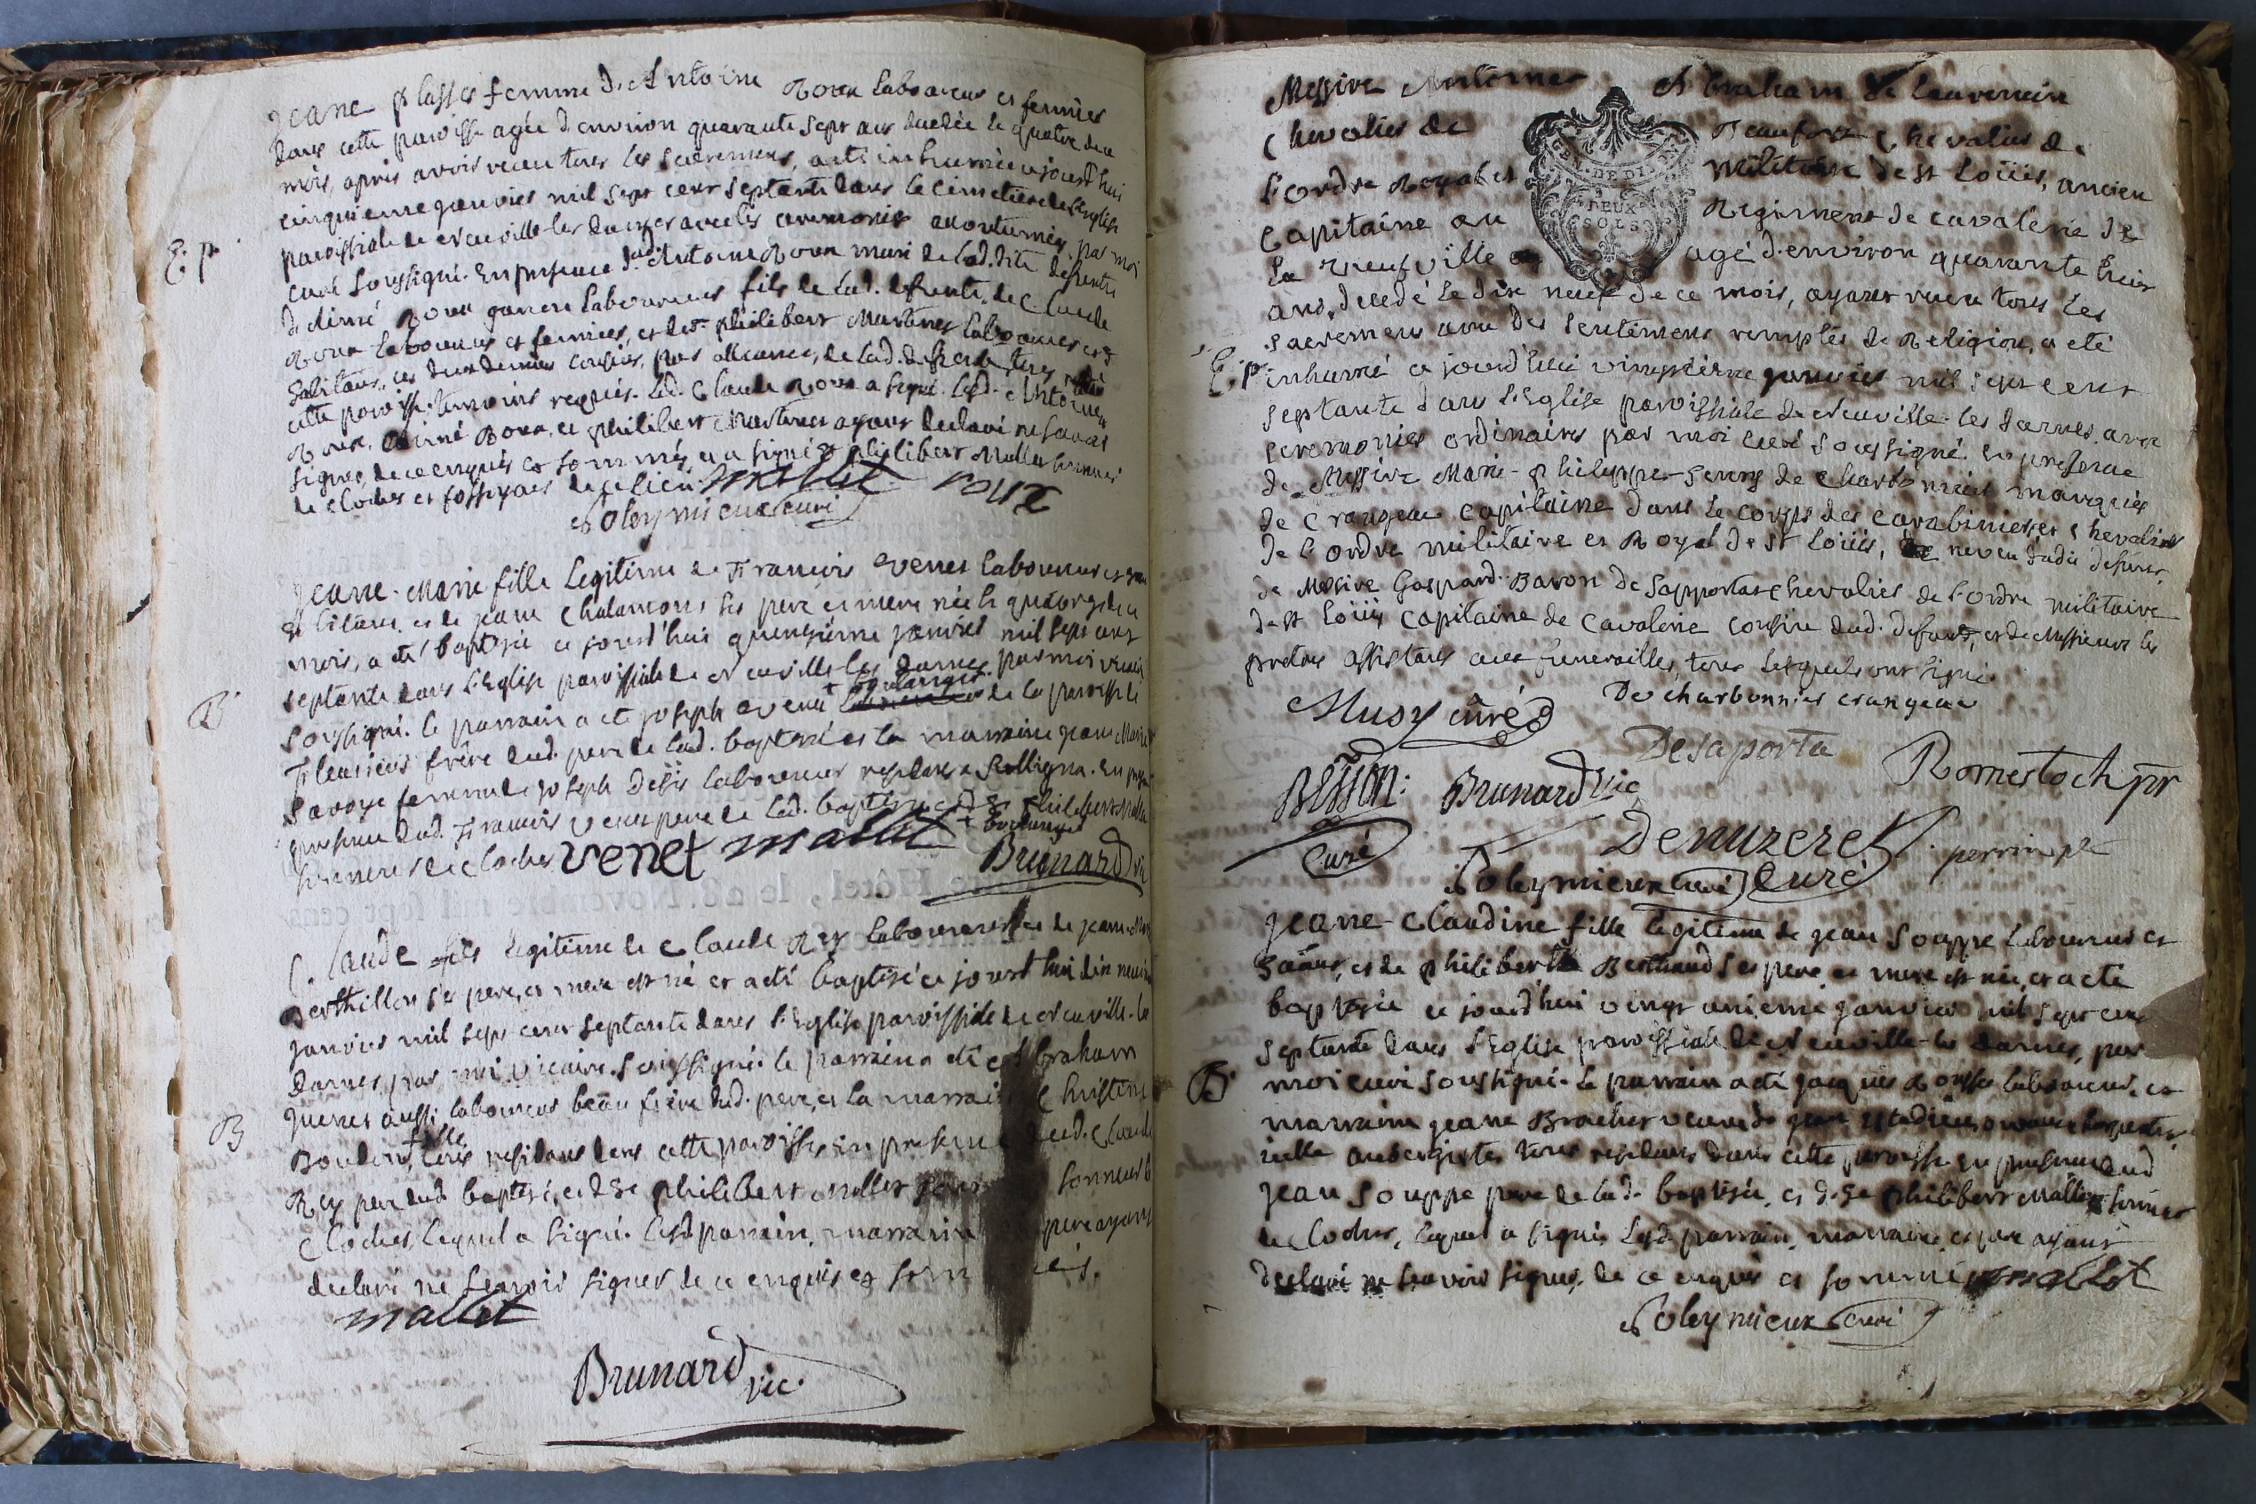 Jeane plasse femme d'Antoine Roux laboureur et fermier
dans cette paroisse agée d'environ quarante sept ans decedée le quatre de ce
mois, apres avoir receu tous les sacremens, a eté inhumée cejourd'hui
cinquieme janvier mil sept cent septante dans le cimetiere de l'eglise
paroissiale de Neuville-les dames avec les ceremonies accoutumées, par moi
E. p.
curé soussigné. En presence dud. Antoine Roux mari de lad. dite defunte
d'Aimé Roux laboureur fils de lad. defunte, de Claude
Roux laboureur et fermier, et de philibert Martinet laboureur et
habitant, ces deux derniers cousins, par alliance, de lad. defunte, tous de
cette paroisse. temoins requis. Led. Claude Roux a signé. Lesd. Antoine
Roux, Aimé Roux, et philibert Martinet ayant declaré ne savoir
signer, de ce enquis et sommés, a signé philibert Mallet sonneur
de cloches et fossoyeur de ce lieu. mallet roux
Soleymieux curé
Jeane-Marie fille legitime de François Venet laboureur et
habitant, et de jeane Chalancons ses pere et mere née le quatorze de ce
mois, a eté baptisée ce jourd'hui quinzieme janvier mil sept cent
septante dans l'Eglise paroissiale de Neuville les dames, par moi vicaire
B
+ boulanger
soussigné. le parrain a eté joseph Venet de la paroisse de
fleurieux frère dud. pere de lad. baptisée et la marraine jeane Marie
Savoye femme de joseph laboureur residant a Sulligna. En
presence dud. François Venet pere de lad. baptisée et de philibert Mallet
sonneur de cloches venet mallet + boulanger
Brunard vic
Claude fils legitime de Claude Rey laboureur et de jeane-
Berthillon ses pere, et mere est né et a eté baptisé ce jourd'hui dix neuvieme
janvier mil sept cent septante dans l'Eglise paroissiale de Neuville-les
dames, par moi vicaire soussigné. le parrain a eté Abraham
aussi laboureur beau frere dud. pere, et la marraine Christine
B
fille
Boudon, tous residans dans cette paroisse, en presence dud. Claude
Rey pere dud. baptisé, et de philibert Mallet sonneur de
cloches, lequel a signé. Lesd. parrain, marraine pere ayant
declaré ne savoir signer de ce enquis et sommés.
mallet
Brunard vic.
Messire Antoine Abraham de Lauvernein
Chevalier de Beaufort Chevalier de
l'ordre Royal et militaire de st Loüis, ancien
Capitaine au Regiment de cavalerie de
GEN. DE DIJON
DEUX
SOLS
la Neufville agé d'environ quarante huit
ans, decedé le dix neuf de ce mois, ayant receu tous les
sacremens avec des sentimens remplis de Religion, a eté
E. p
inhumé ce jourd'hui vingtieme janvier mil sept cent
septante dans l'Eglise paroissiale de Neuville-les dames, avec
ceremonies ordinaires par moi curé soussigné. En presence
de Messire Marie-philippe-Seury de Charbonnier marquis
de Crangeac capitaine dans le corps des carabiniers, chevalier
de l'ordre militaire et Royal de st Loüis, neveu dudit defunt,
de Messire Gaspard Baron de Sapportas Chevalier de l'ordre militaire
de st Loüis Capitaine de Cavalerie cousin dud. defunt, et de Messieurs les
pretres assistans aux funerailles, tous lesquels ont signé.
Musy curé De charbonnier crangeac
Desaporta
Besson. Brunard vic. Romestoch ptr
curé Denuzeret perrin ptr
Soleymieux curé Curé
Jeane-Claudine fille legitime de jean Souppe laboureur et
et de philiberte Berthaud ses pere et mere est née, et a eté
baptisée ce jourd'hui vingt unieme janvier mil sept cent
septante dans l'Eglise paroissiale de Neuville-les dames, par
B
moi curé soussigné. le parrain a eté jacques Rousset laboureur, et
marraine jeane Brachet veuve de jean
aubergiste, tous residans dans cette paroisse. En presence dud
jean Souppe pere de lad. baptisée, et de philibert Mallet sonneur
de cloches, lequel a signé. Lesd. parrain, marraine, et pere ayant
declaré ne savoir signer, de ce enquis et sommés mallet
Soleymieux curé